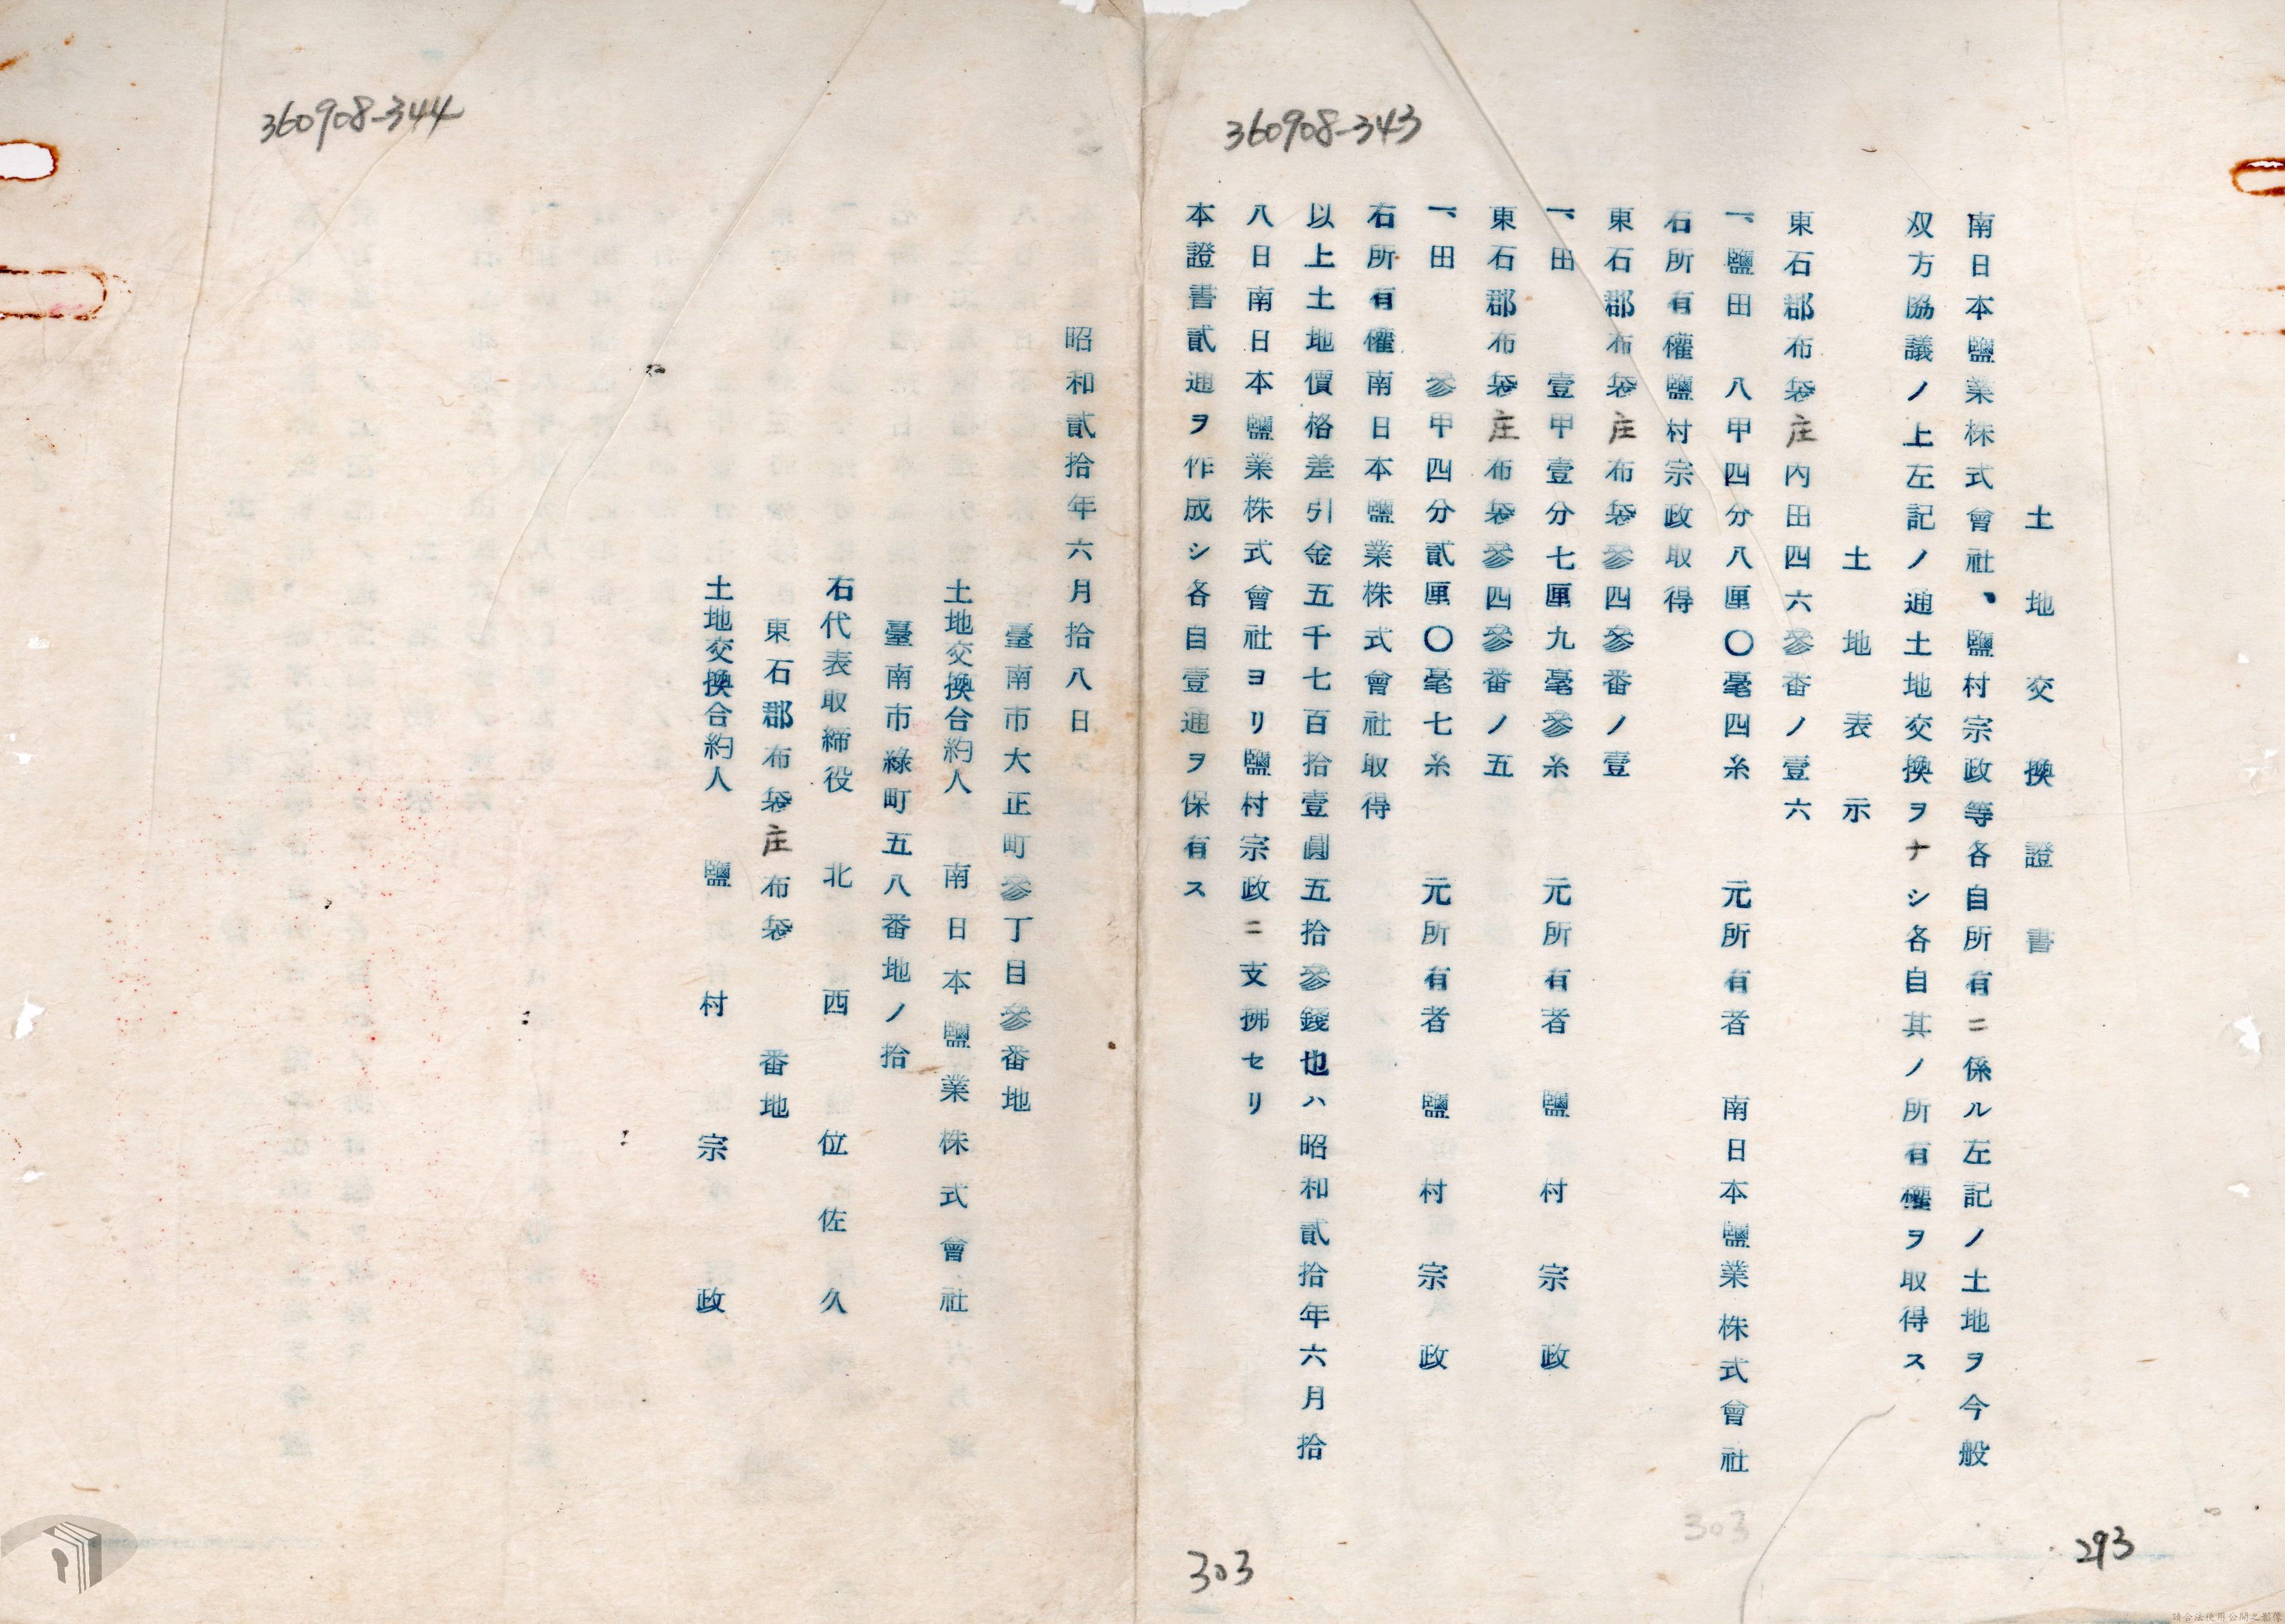 360908-343
土地交換證書
南日本鹽業株式會社、鹽村宗政等各自所有ニ係ル左記ノ土地ヲ今般
双方協議ノ上左記ノ通土地交換ヲナシ各自其ノ所有權ヲ取得ス
土地表示
東石郡布袋庄內田四六參番ノ壹六
一、鹽田 八甲四分八厘〇毫四糸 元所有者 南日本鹽業株式會社
右所有權鹽村宗政取得
東石郡布袋庄布袋參四參番ノ壹
一、田 壹甲壹分七厘九毫參糸 元所有者 鹽村宗政
東石郡布袋庄布袋參四參番ノ五
一、田 參甲四分貳厘〇毫七糸 元所有者 鹽村宗政
右所有權南日本鹽業株式會社取得
以上土地價格差引金五千七百拾壹圓五拾參錢也ハ昭和貳拾年六月拾
八日南日本鹽業株式會社ヨリ鹽村宗政ニ支拂セリ
本證書貳通ヲ作成シ各自壹通ヲ保有ス
303
303
293
360908-344
昭和貳拾年六月拾八日
臺南市大正町參丁目參番地
土地交換合約人 南日本鹽業株式會社
臺南市綠町五八番地ノ拾
右代表取締役 北西位佐久
東石郡布袋庄布袋 番地
土地交換合約人 鹽村宗政
請合法使用公開之影像